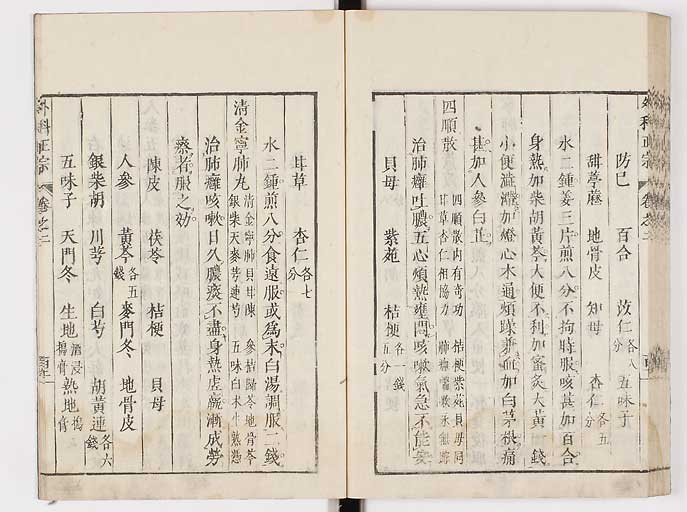 防巳　百合　苡仁各八分　五味子
甜葶藶　地骨皮　知母　杏仁各五分
水二鍾姜三片煎八分不拘時服咳甚加百合
身熱加柴胡黃芩大便不利加蜜炙大黃一錢
小便澁滯加燈心木通煩躁痰血加白茅根痛
甚加人參白芷
四順散　四順散內有奇功　桔梗紫菀貝母同　甘草杏仁相協力　肺癰
治肺癰吐膿五心煩熱壅悶咳嗽氣急不能安
貝母　紫菀　桔梗各一錢五分
外科正宗　卷之二
甘草　杏仁各七分
水二鍾煎八分食遠服或為末白湯調服二錢
清金寧肺丸　清金寧肺貝母陳　參桔歸苓地骨芩　銀柴天麥芎連芍　五味白朮生熟
治肺癰咳嗽日久膿痰不盡身熱虛羸漸成勞
瘵者服之効
陳皮　茯苓　桔梗　貝母
人參　黃芩各五錢　麥門冬　地骨皮
銀柴胡　川芎　白芍　胡黃連各六錢
五味子　天門冬　生地酒浸搗膏　熟地搗膏
外科正宗　卷之二